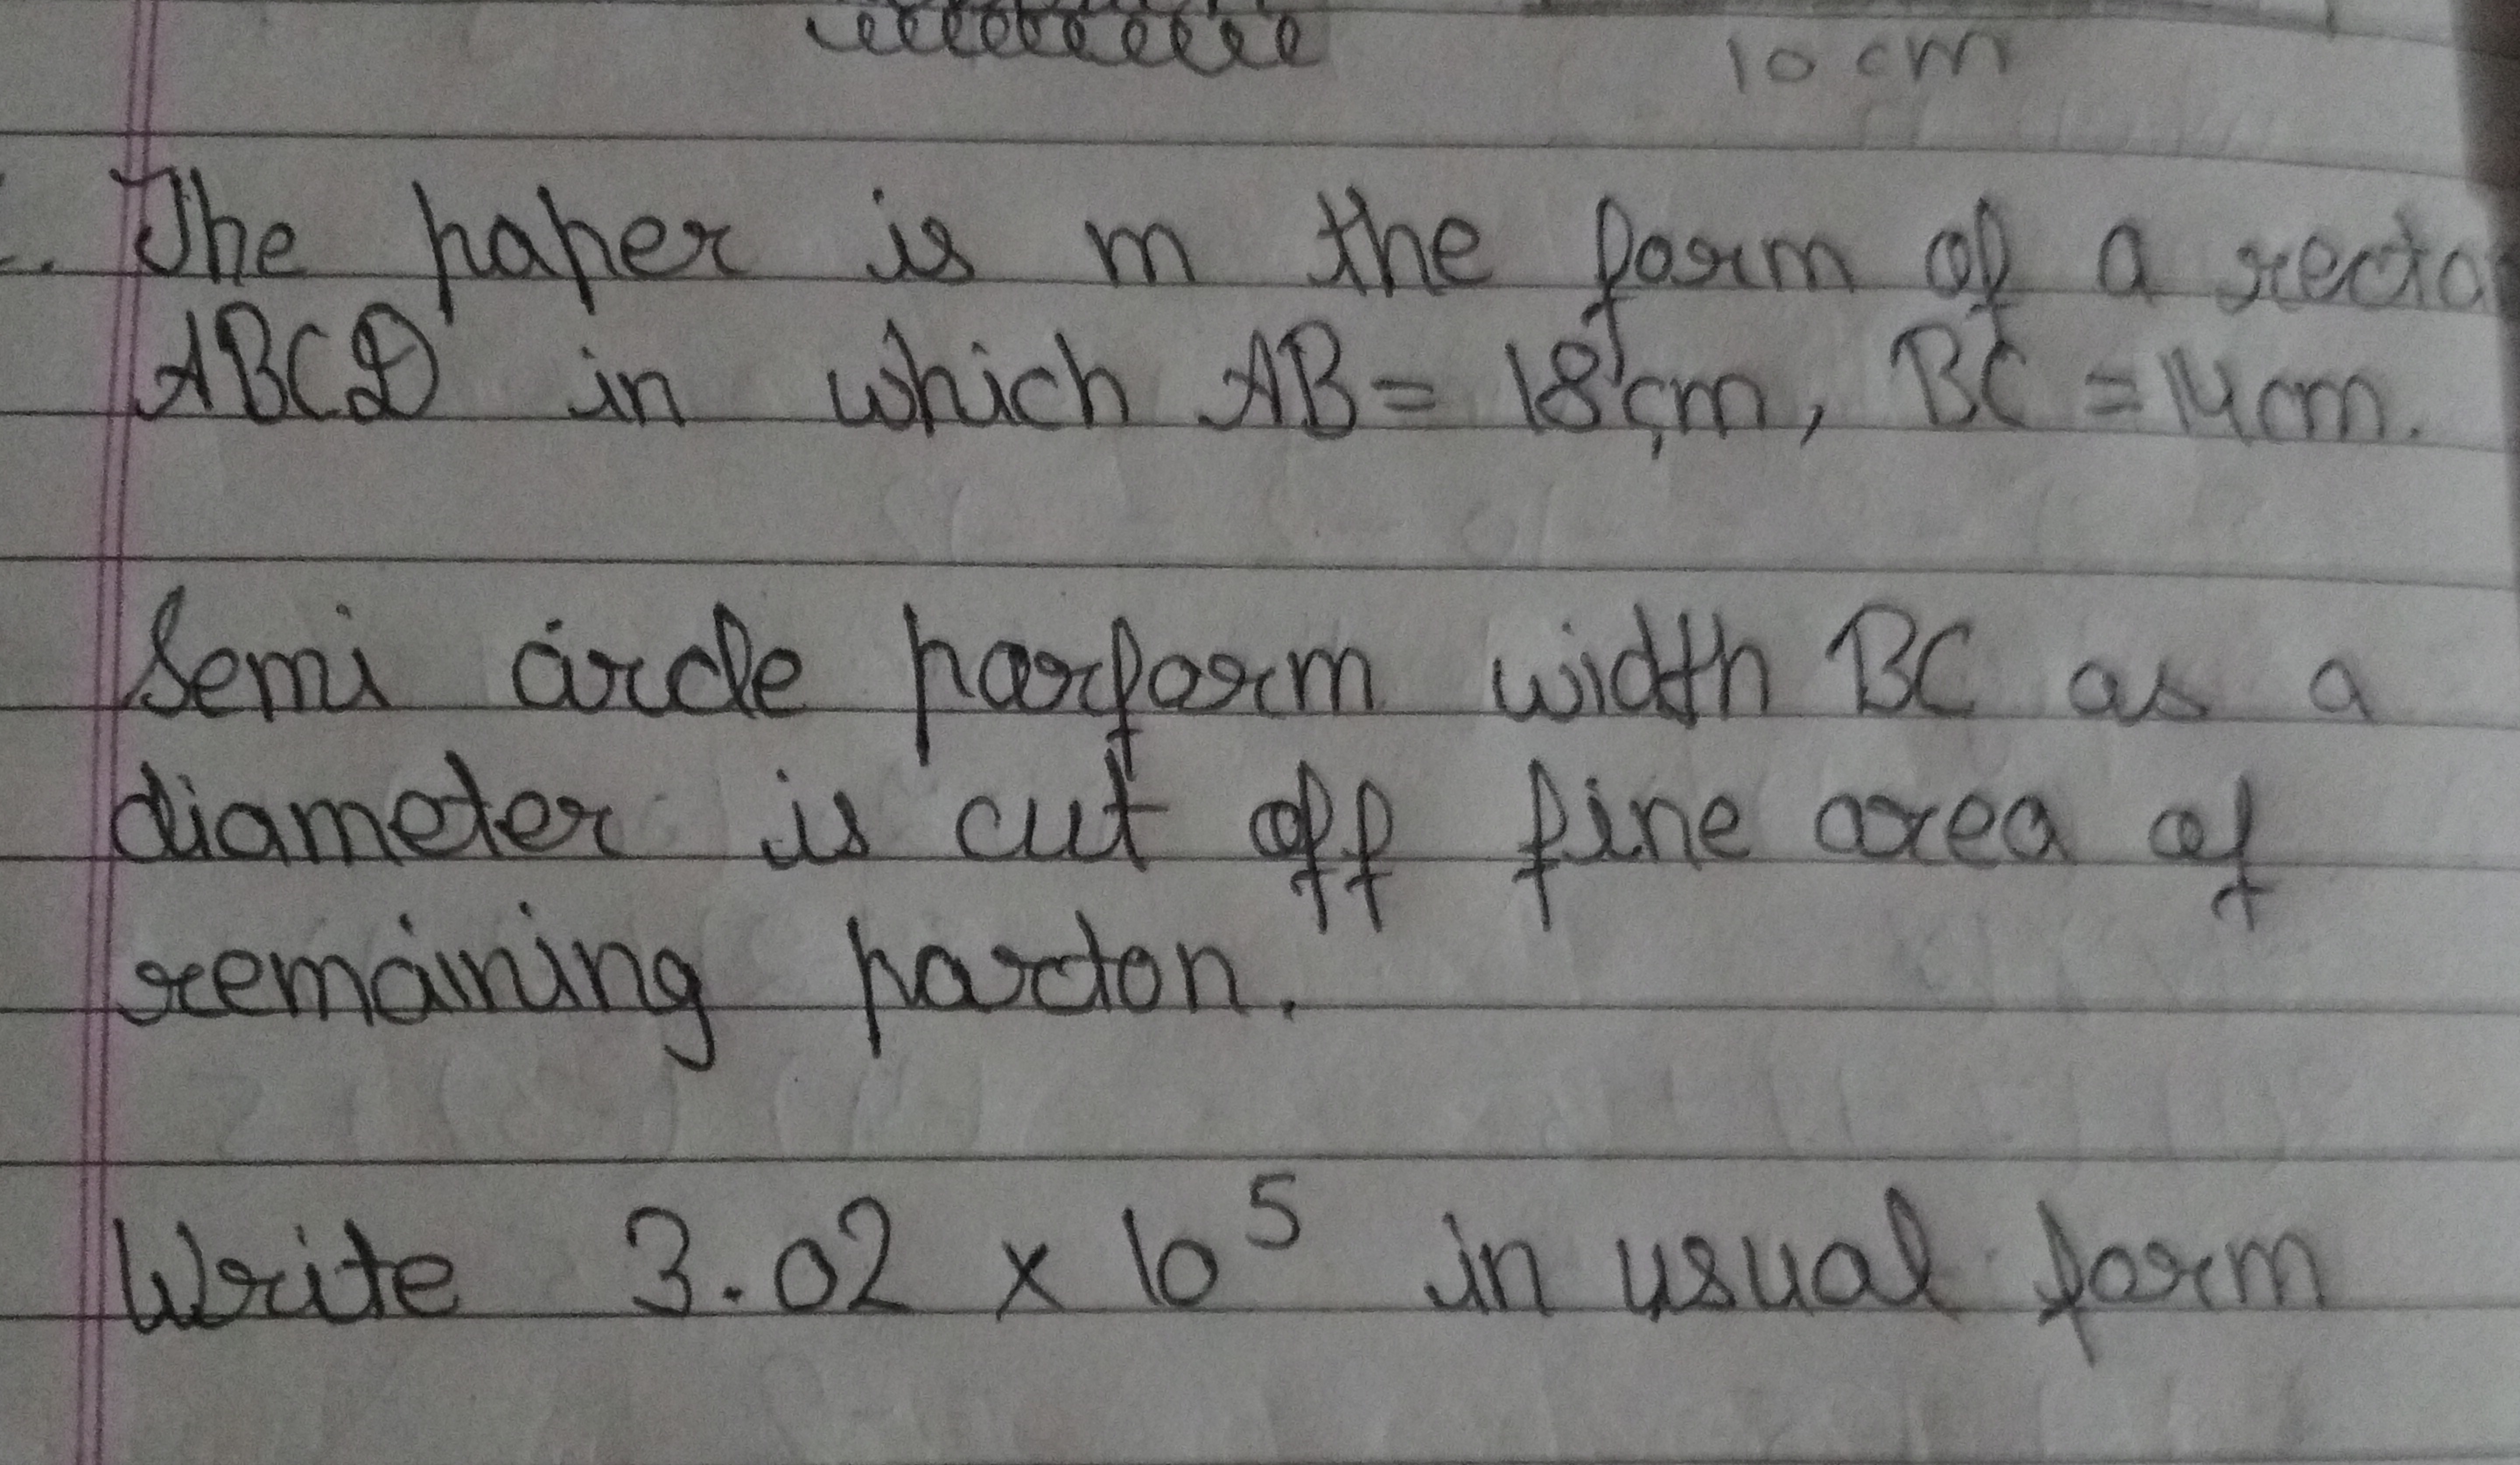 10 cm
The paper is m the form of a recta
ABCD in which AB = 18 cm, BC = 14 cm.
Semi circle parform width BC as a
diameter is cut off fine area of
remaining parton.
Write 3.02 x 10⁵ in usual form